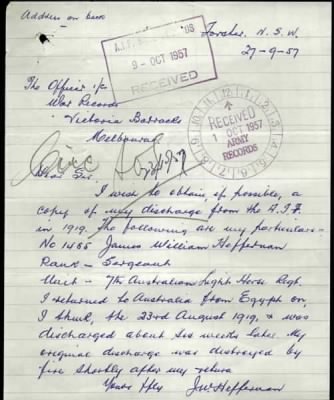 Address on back
Forster. N.S.W.
27-9-57
A.I.F.
9 - OCT 1957
RECEIVED
The Officer i/c
War Records
Victoria Barracks
Melbourne
RECEIVED
1 OCT 1957
ARMY
RECORDS
Dear Sir.
I wish to obtain, if possible, a
copy of my discharge from the A.I.F.
in 1919. The following are my particulars-
No 1455 James William Heffernan
Rank - Sergeant
Unit - 7th Australian Light Horse Regt.
I returned to Australia from Egypt on,
I think, the 23rd August 1919, & was
discharged about six weeks later. My
original discharge was destroyed by
fire shortly after my return
Yours ffly
JW Heffernan